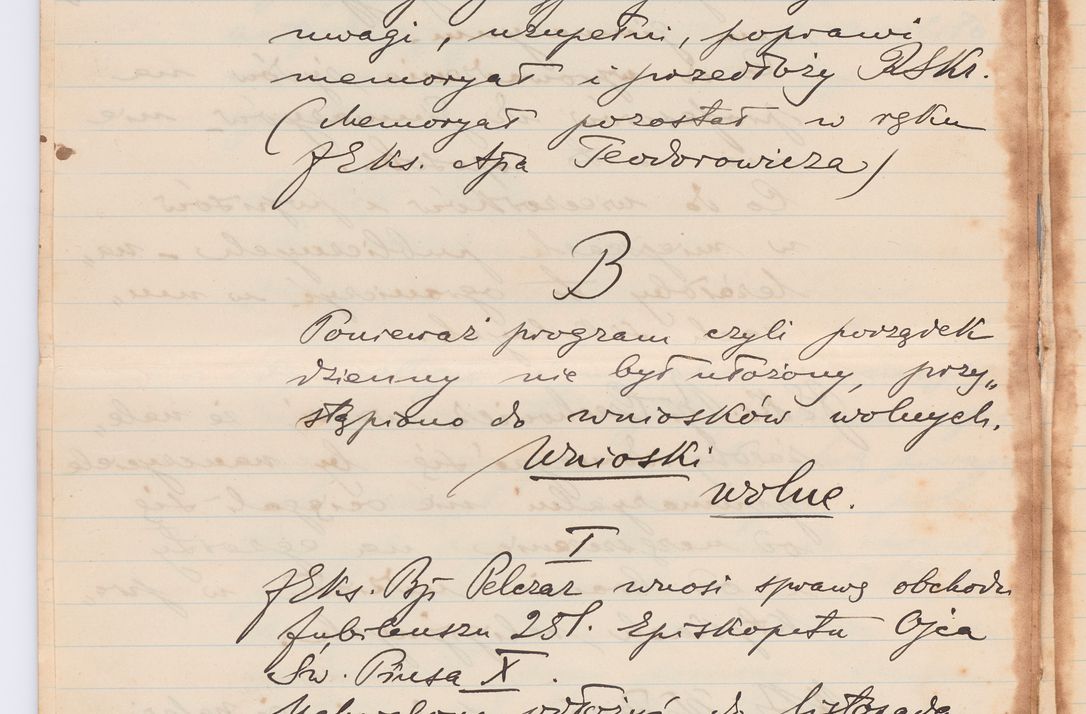 uwagi, uzupełni, poprawi
memoryał i przedłoży RSKr.
(Memoryał pozostał w ręku
JEks. Apa Teodorowicza)
B
Ponieważ program czyli porządek
dzienny nie był ułożony, przy„
stąpiono do wniosków wolnych.
Wnioski
wolne.
I
JEks. Bp Pelczar wnosi sprawę obchodu
Jubileuszu 25l. Episkopatu Ojca
Św. Piusa X.
odłożyć do listopada